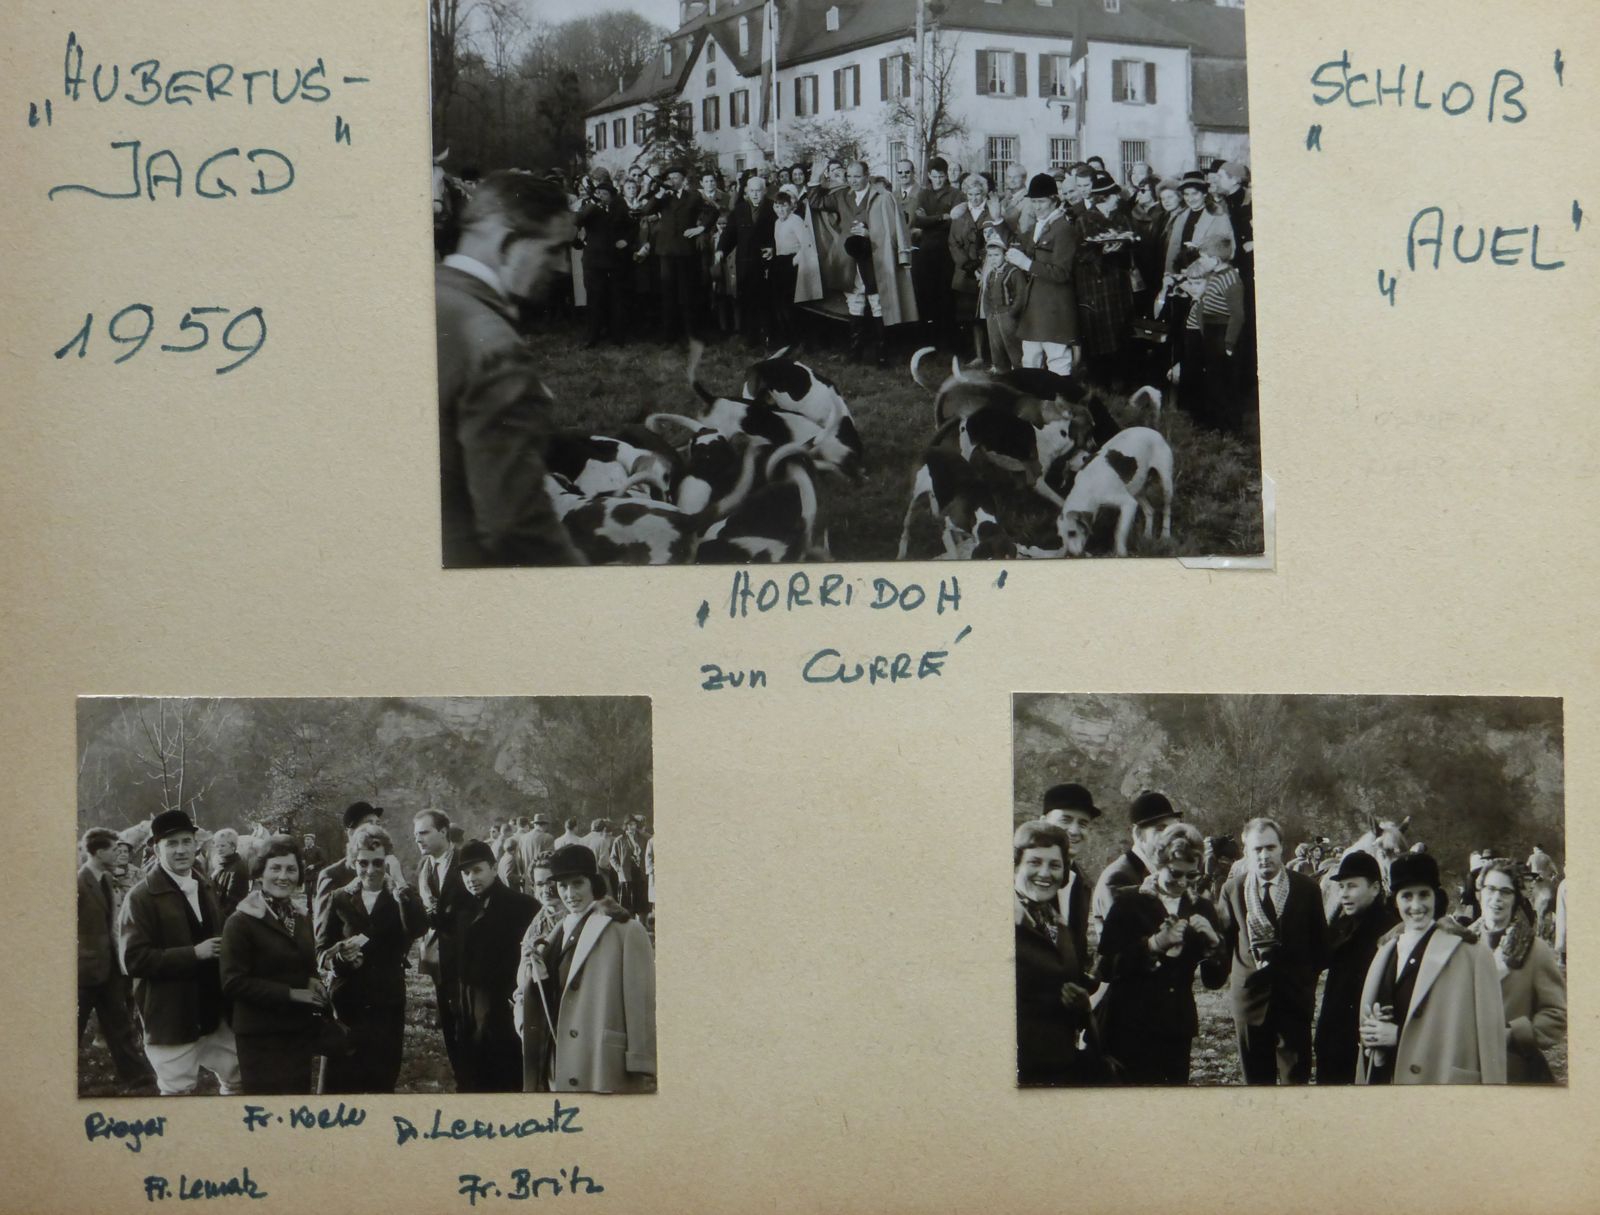 „HUBERTUS-
JAGD"
1959
"SCHLOß"
„AUEL"
‚HORRIDOH'
zun CURRÉ
Rieger Fr. Koehr Dr. Lennartz
Fr. Lennartz Fr. Britz